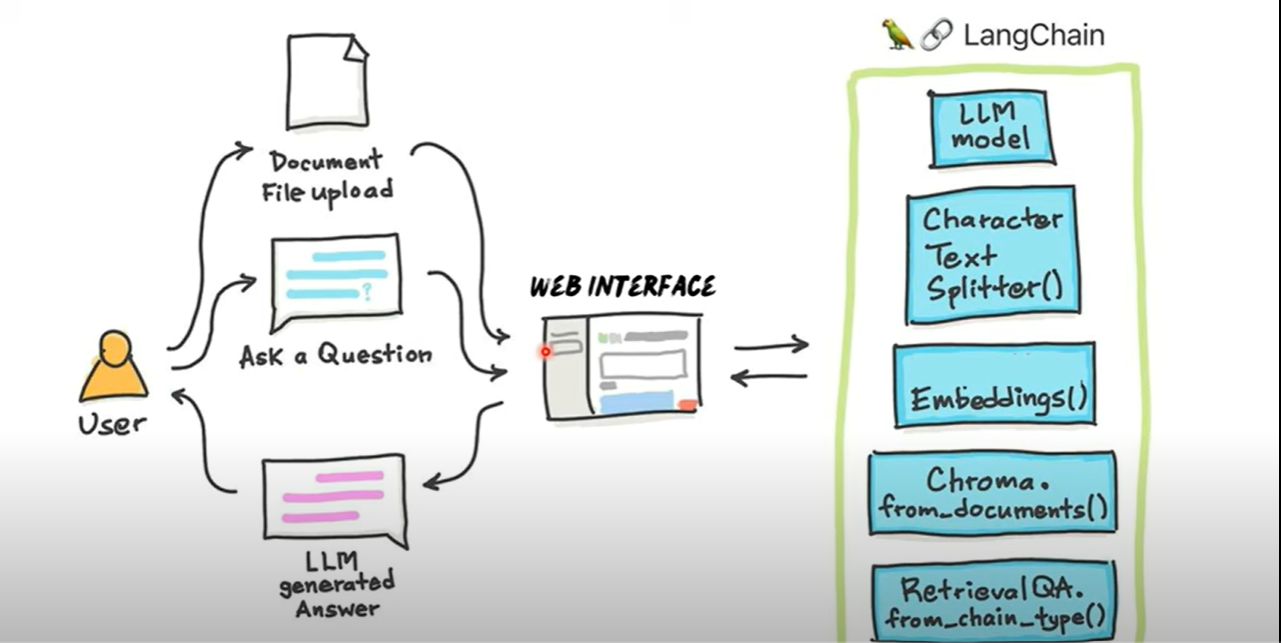 LangChain
Document
File upload
?
Ask a Question
User
LLM
generated
Answer
WEB INTERFACE
LLM
model
Character
Text
Splitter()
Embeddings()
Chroma.
from_documents()
RetrievalQA.
from_chain_type()